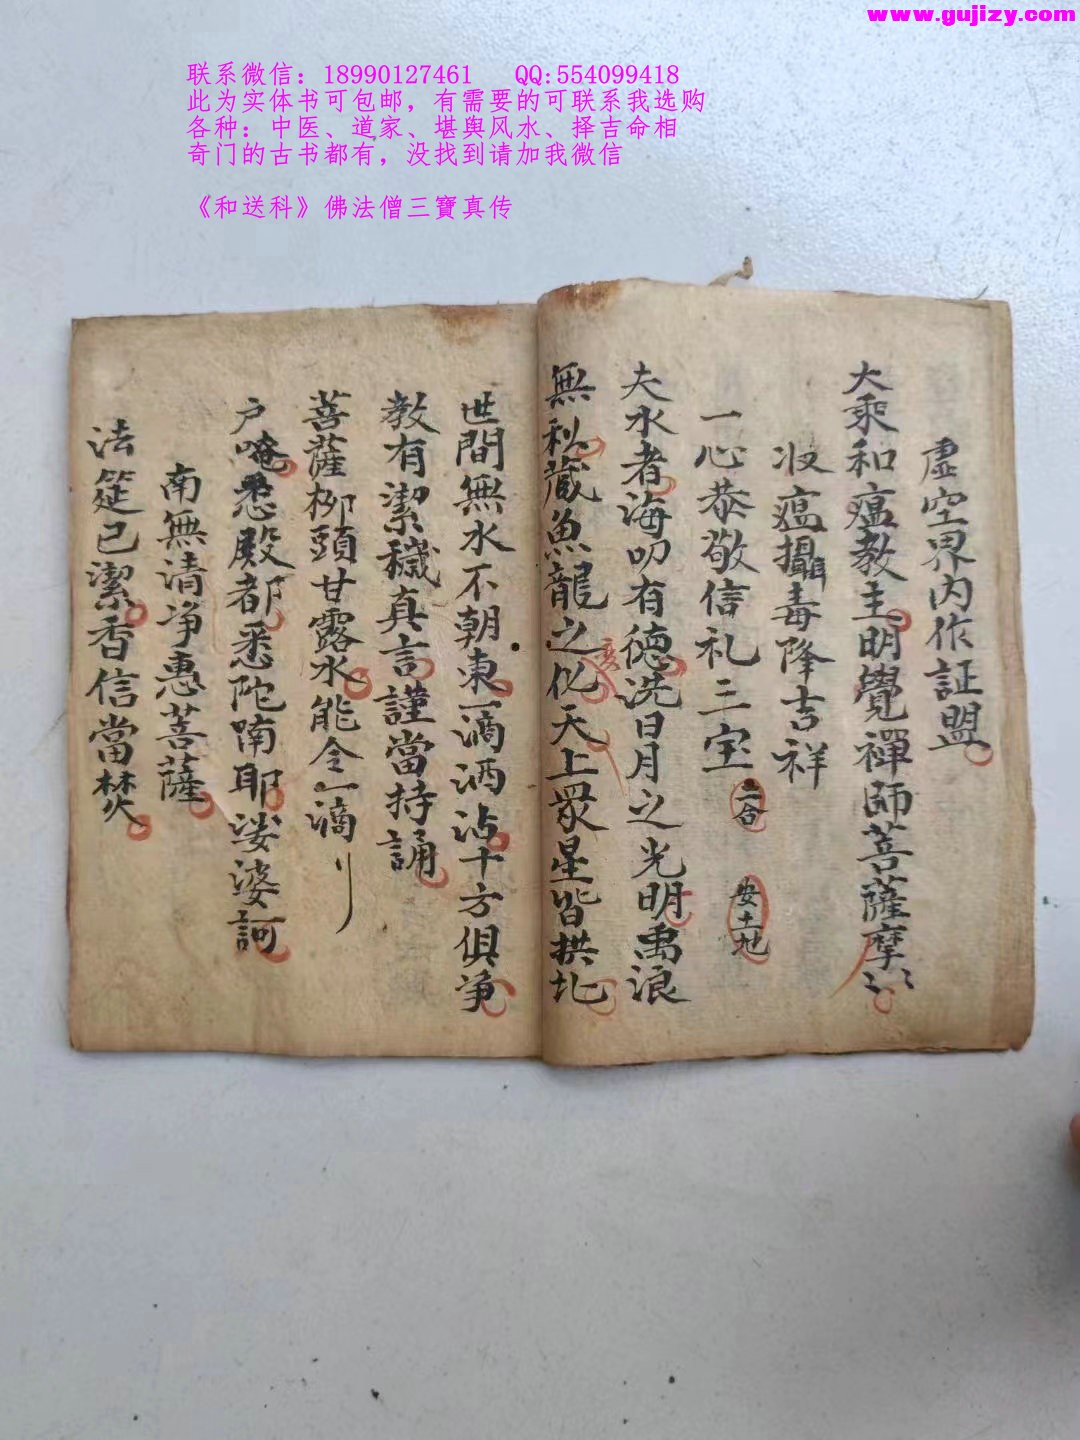 www.gujizy.com
联系微信：18990127461 QQ:554099418
此为实体书可包邮，有需要的可联系我选购
各种：中医、道家、堪舆风水、择吉命相
奇门的古书都有，没找到请加我微信
《和送科》佛法僧三寶真传
虛空界内作証盟
大乘和瘟教主明覺禪師菩薩摩
收瘟攝毒降吉祥
一心恭敬信礼三宝 二合 安土地
夫水者海叨有德洗日月之光明禹浪
無私藏魚龍之化天上眾星皆拱北
变
世間無水不朝東一滴洒沾十方俱净
教有潔穢真言謹當持誦
菩薩柳頭甘露水能令一滴刂
户唵悉殿都悉陀喃耶娑婆訶
南無清净惠菩薩
法筵已潔香信當焚